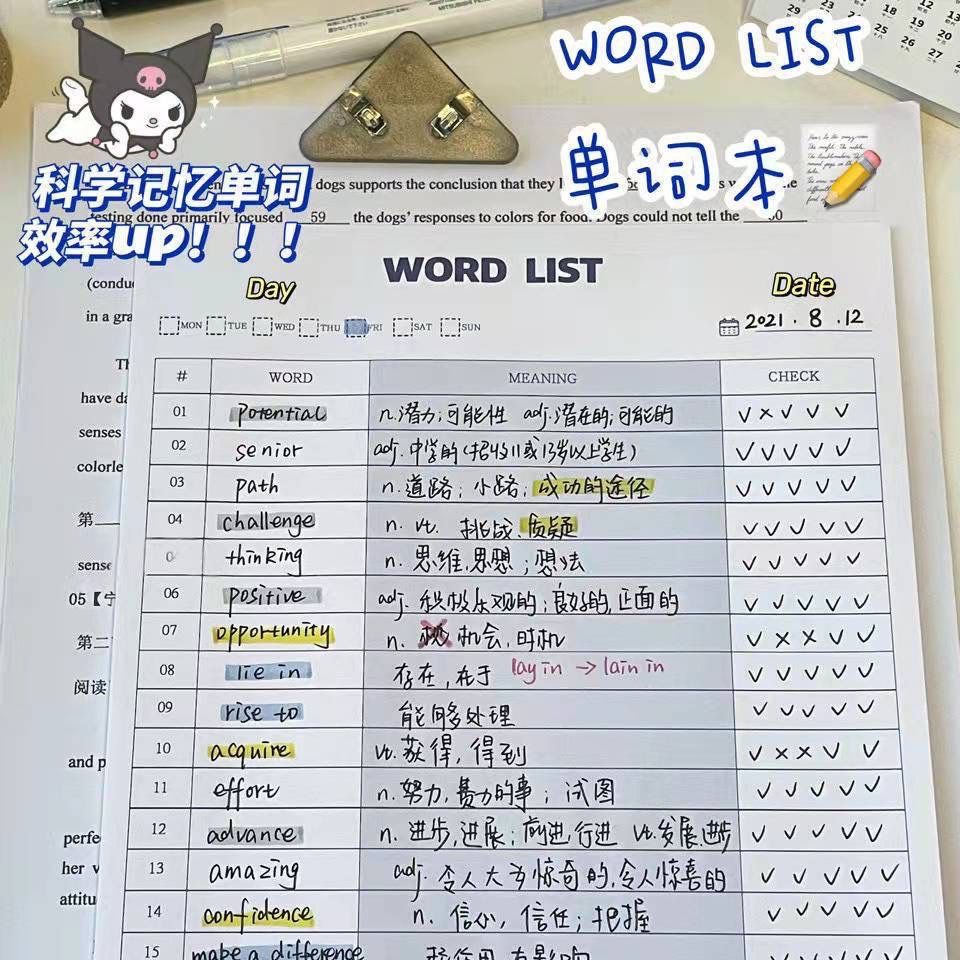 WORD LIST
单词本
科学记忆单词
效率up！！！
dogs supports the conclusion that they
testing done primarily focused 59 the dogs' responses to colors for food. Dogs could not tell the
(condu
in a gra
Th
have da
senses
colorle
第
sense
05【宁
第二
阅读
and p
perfe
her v
attitu
WORD LIST
Day
Date
MON TUE WED THU FRI SAT SUN
2021.8.12
# WORD MEANING CHECK
01 potential n.潜力;可能性 adj.潜在的;可能的 ✓×✓✓✓
02 senior adj.中学的(招收11或13岁以上学生) ✓✓✓✓✓
03 path n.道路;小路;成功的途径 ✓✓✓✓✓
04 challenge n. vt. 挑战、质疑 ✓✓✓✓✓
0 thinking n.思维,思想;想法 ✓✓✓✓✓
06 positive adj.积极乐观的;良好的,正面的 ✓✓✓✓✓
07 opportunity n. 机会,时机 ✓××✓✓
08 lie in 存在,在于 lay in →lain in ✓✓✓✓✓
09 rise to 能够处理 ✓✓✓✓✓
10 acquire vt.获得,得到 ✓××✓✓
11 effort n.努力,费力的事;试图 ✓✓✓✓✓
12 advance n.进步,进展;前进,行进 vt.发展,进步 ✓✓✓✓✓
13 amazing adj.令人大为惊奇的,令人惊喜的 ✓✓✓✓✓
14 confidence n.信心,信任;把握 ✓✓✓✓✓
15 make a difference